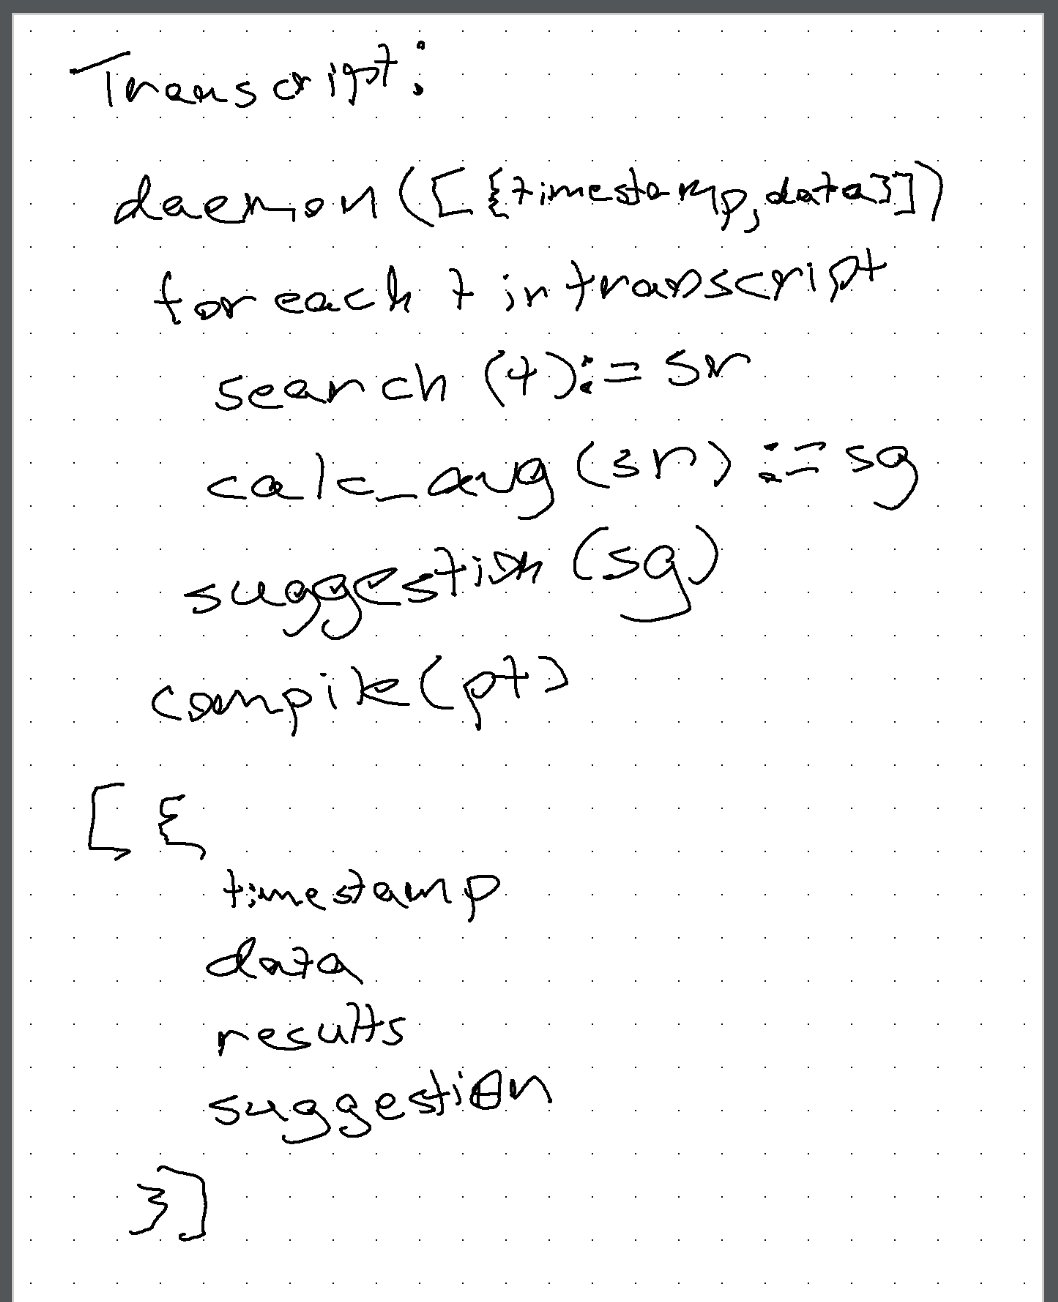 Transcript:
daemon([{timestamp,data}])
for each t in transcript
search (t):= sr
calc_avg (sr) := sg
suggestion (sg)
compile(pt)
[{
timestamp
data
results
suggestion
}]